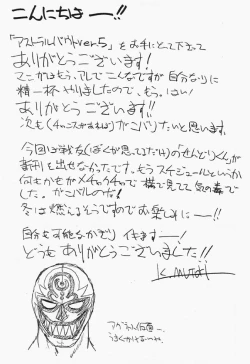 こんにちはー!!
「アストラルバウトver.5」をお手にとって下さって
ありがとうございます!
マンガはもう、アレでこんなですが自分なりに
精一杯やりましたので、もう。はい!
ありがとうございます!!
次も(チャンスがあれば)ガンバりたいと思います。
今回は戦友(ぼくが思ってるだけ)の「せんどりくん」が
新刊を出せなかったです。もうスケジュールというか
何もかもメチャクチャで横で見てて気の毒で
した。ガンバルのだ!
冬は燃えるそうですのでお楽しみにー!!
自分も可能なかぎりイキますー!
どうもありがとうございました!!
K.MUTOH